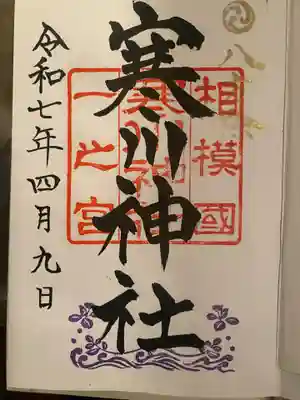 八
相模國
寒川神社
一之宮
寒川神社
令和七年四月九日